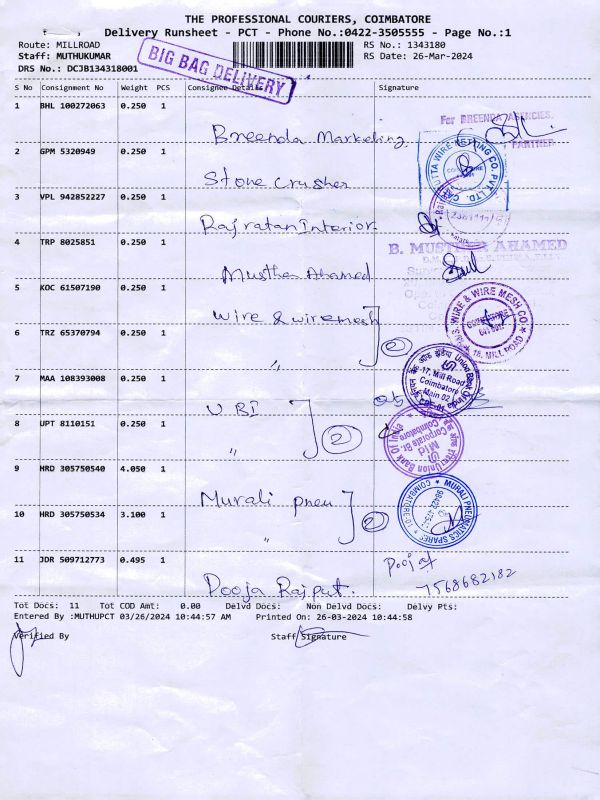 THE PROFESSIONAL COURIERS, COIMBATORE
Delivery Runsheet - PCT - Phone No.:0422-3505555 - Page No.:1
Route: MILLROAD
RS No.: 1343180
Staff: MUTHUKUMAR
RS Date: 26-Mar-2024
DRS No.: DCJB134318001
BIG BAG DELIVERY
S No Consignment No Weight PCS Consignee Details Signature
1 BHL 100272063 0.250 1
Breenda Marketing
For BREENDA AGENCIES.
PARTNER
2 GPM 5320949 0.250 1
Stone crusher
WIRE NETTING CO. PVT. LTD.
3 VPL 942852227 0.250 1
Rajratan Interior
4 TRP 8025851 0.250 1
Musther Ahamed
B. MUSTHER AHAMED
5 KOC 61507190 0.250 1
wire & wiremesh
WIRE & WIRE MESH CO.
COIMBATORE
18, MILL ROAD
6 TRZ 65370794 0.250 1
"
2
7 MAA 108393008 0.250 1
UBI
Union Bank Of India
17, Mill Road
Coimbatore
Main 02
8 UPT 8110151 0.250 1
"
2
Union Bank Of
Corporate Br.
Coimbatore
Mid
9 HRD 305750540 4.050 1
Murali pneu
MURALI PNEUMATICS SPARES
COIMBATORE
10 HRD 305750534 3.100 1
"
2
11 JDR 509712773 0.495 1
Pooja Rajput.
7568682182
Tot Docs: 11 Tot COD Amt: 0.00 Delvd Docs: Non Delvd Docs: Delvy Pts:
Entered By :MUTHUPCT 03/26/2024 10:44:57 AM Printed On: 26-03-2024 10:44:58
Verified By
Staff Signature